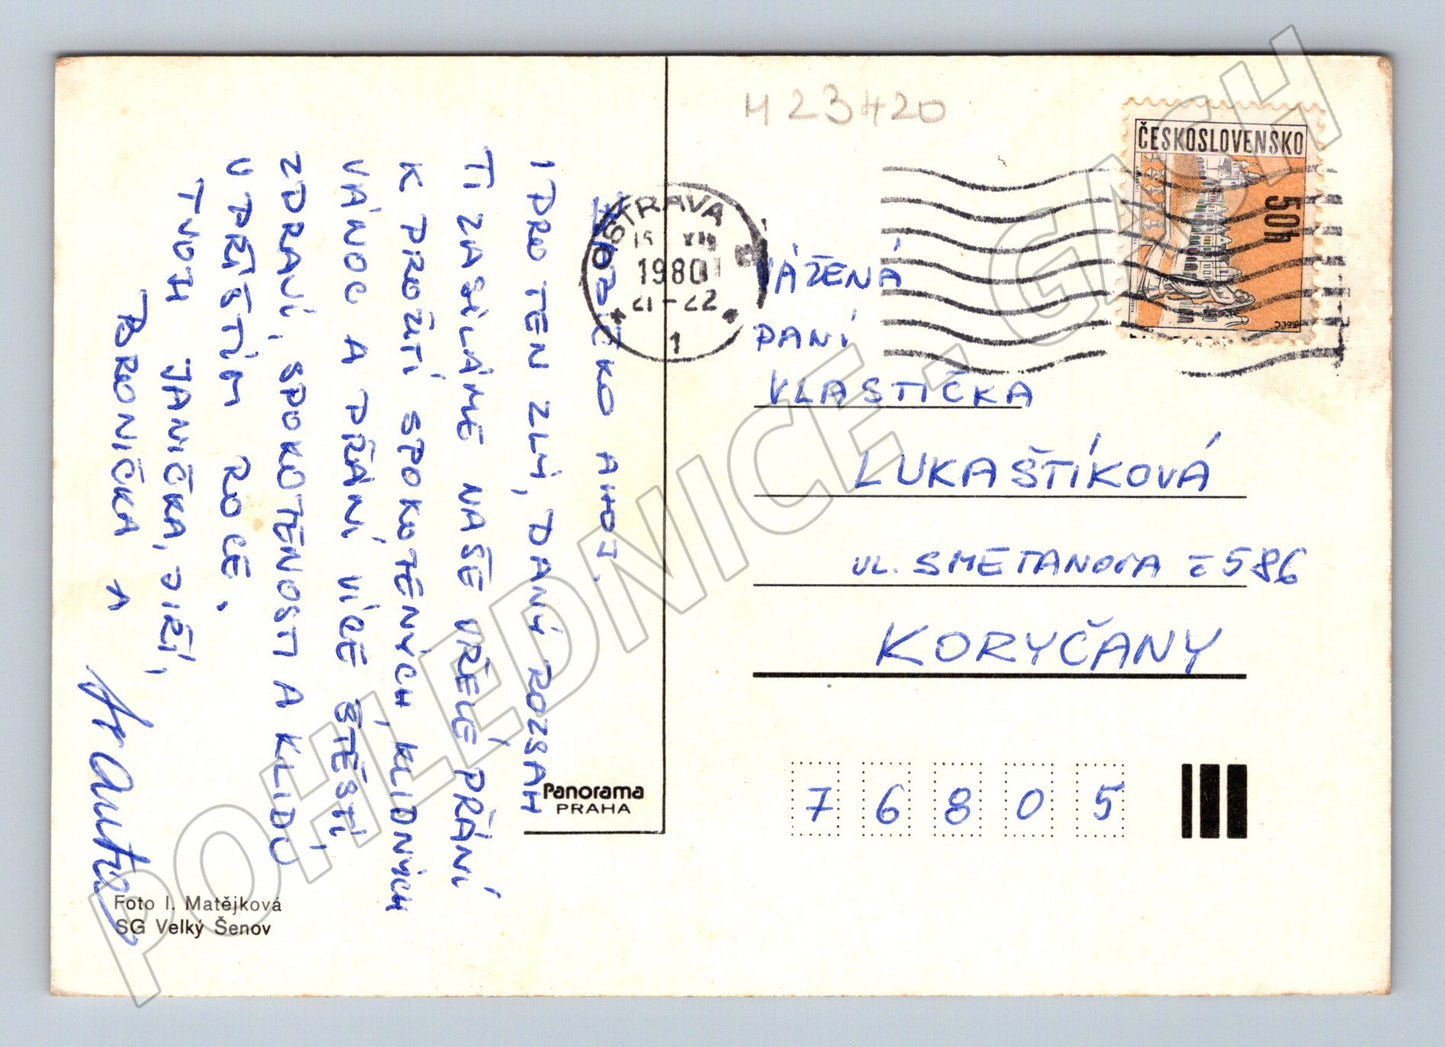 M 23420
ČESKOSLOVENSKO
50h
OSTRAVA
15. XII
1980
21-22
1
AHOJ.
I PRO TEN ZLÝ, DANÝ ROZSAH
TI ZASÍLÁME NAŠE VŘELÉ PŘÁNÍ
K PROŽITÍ SPOKOTENÝCH, KLIDNÝCH
VÁNOC A PŘÁNÍ VÍCE ŠTĚSTÍ,
ZDRAVÍ, SPOKOTENOSTI A KLIDU
V PŘÍŠTÍM ROCE.
TVOJI JANIČKA, JIŘÍ,
BRONIČKA A
VÁŽENÁ
PANÍ
VLASTIČKA
LUKAŠTÍKOVÁ
UL. SMETANOVA č 586
KORYČANY
76805
Panorama
PRAHA
Foto I. Matějková
SG Velký Šenov
POHLEDNICE - GASH